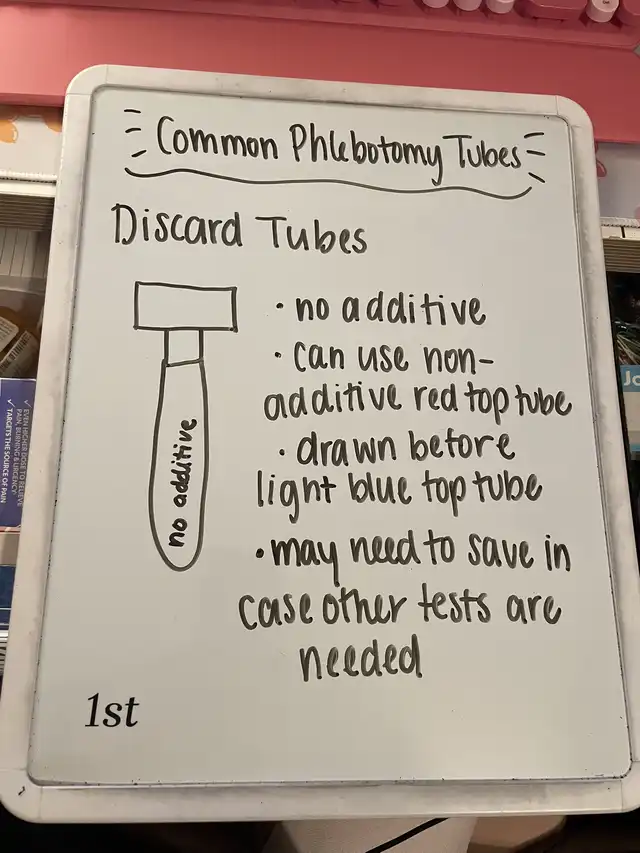 Common Phlebotomy Tubes
Discard Tubes
no additive
• no additive
• can use non-
additive red top tube
• drawn before
light blue top tube
• may need to save in
case other tests are
needed
1st
✓ EVEN HIGHER DOSE TO RELIEVE
PAIN, BURNING & URGENCY
✓ TARGETS THE SOURCE OF PAIN
Jo